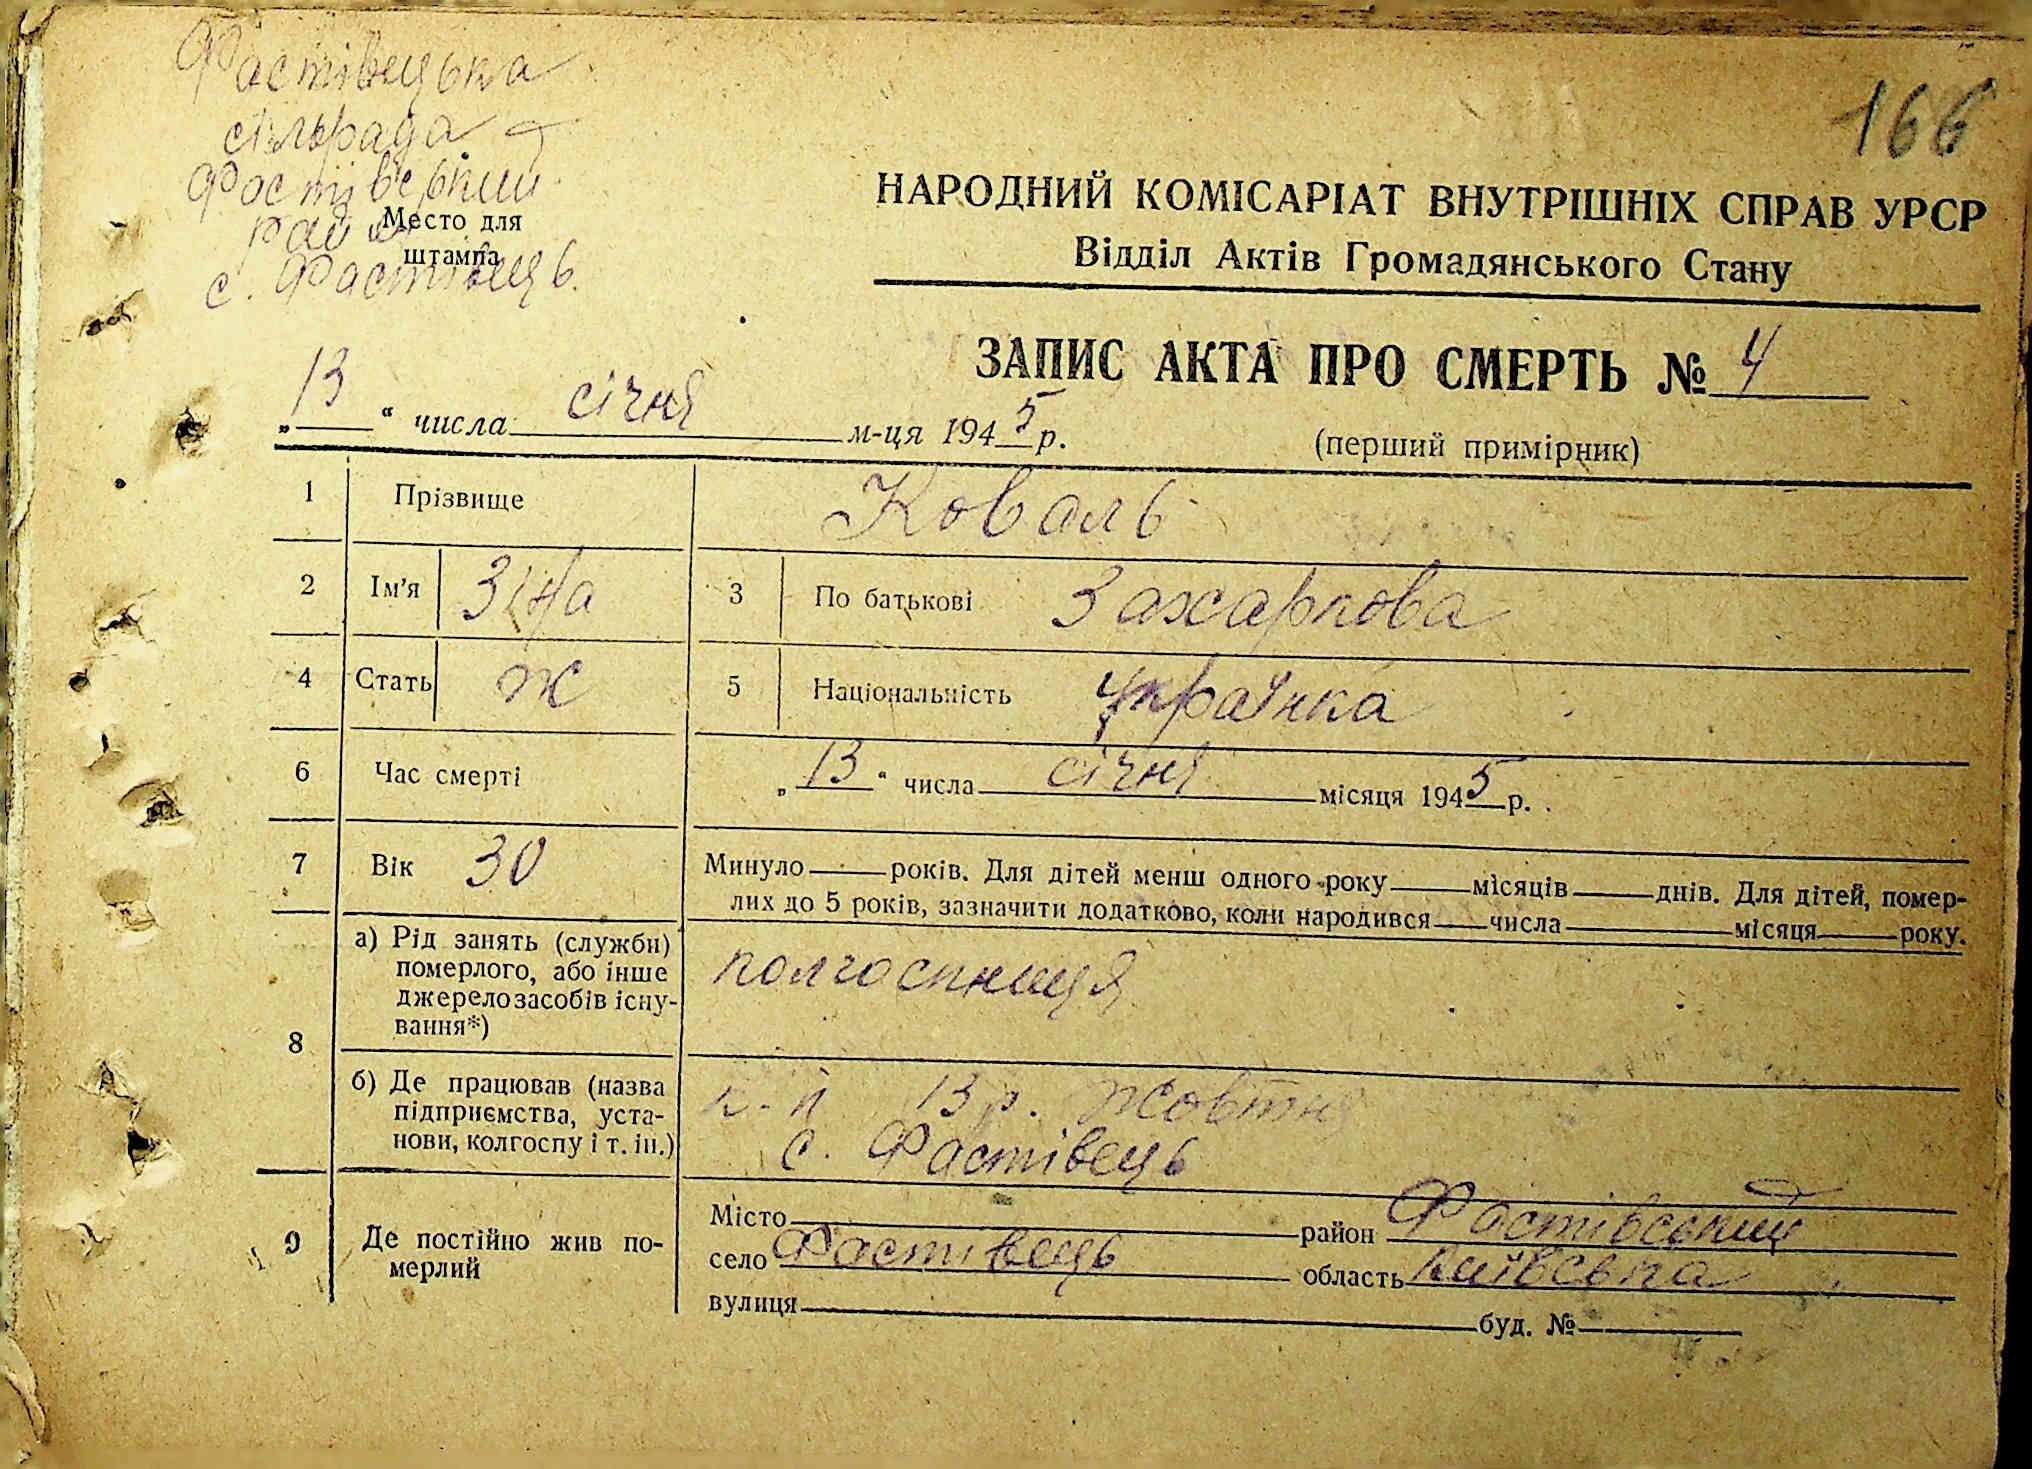 Фастівецька
сільрада
Фастівський
район
с. Фастівець.
Место для
штампа
166
НАРОДНИЙ КОМІСАРІАТ ВНУТРІШНІХ СПРАВ УРСР
Відділ Актів Громадянського Стану
ЗАПИС АКТА ПРО СМЕРТЬ № 4
„13“ числа січня м-ця 1945 р. (перший примірник)
1 Прізвище Коваль
2 Ім'я Зіна 3 По батькові Захаркова
4 Стать ж 5 Національність українка
6 Час смерті „13“ числа січня місяця 1945 р.
7 Вік 30 Минуло року років. Для дітей менш одного року місяців днів. Для дітей, помер-
лих до 5 років, зазначити додатково, коли народився числа місяця року.
8 а) Рід занять (служби)
померлого, або інше
джерело засобів існу-
вання*)
колгоспниця
б) Де працював (назва
підприємства, уста-
нови, колгоспу і т. ін.)
к-п 13 р. Жовтня
с. Фастівець
9 Де постійно жив по-
мерлий
Місто район Фастівський
село Фастівець область Київська
вулиця буд. №